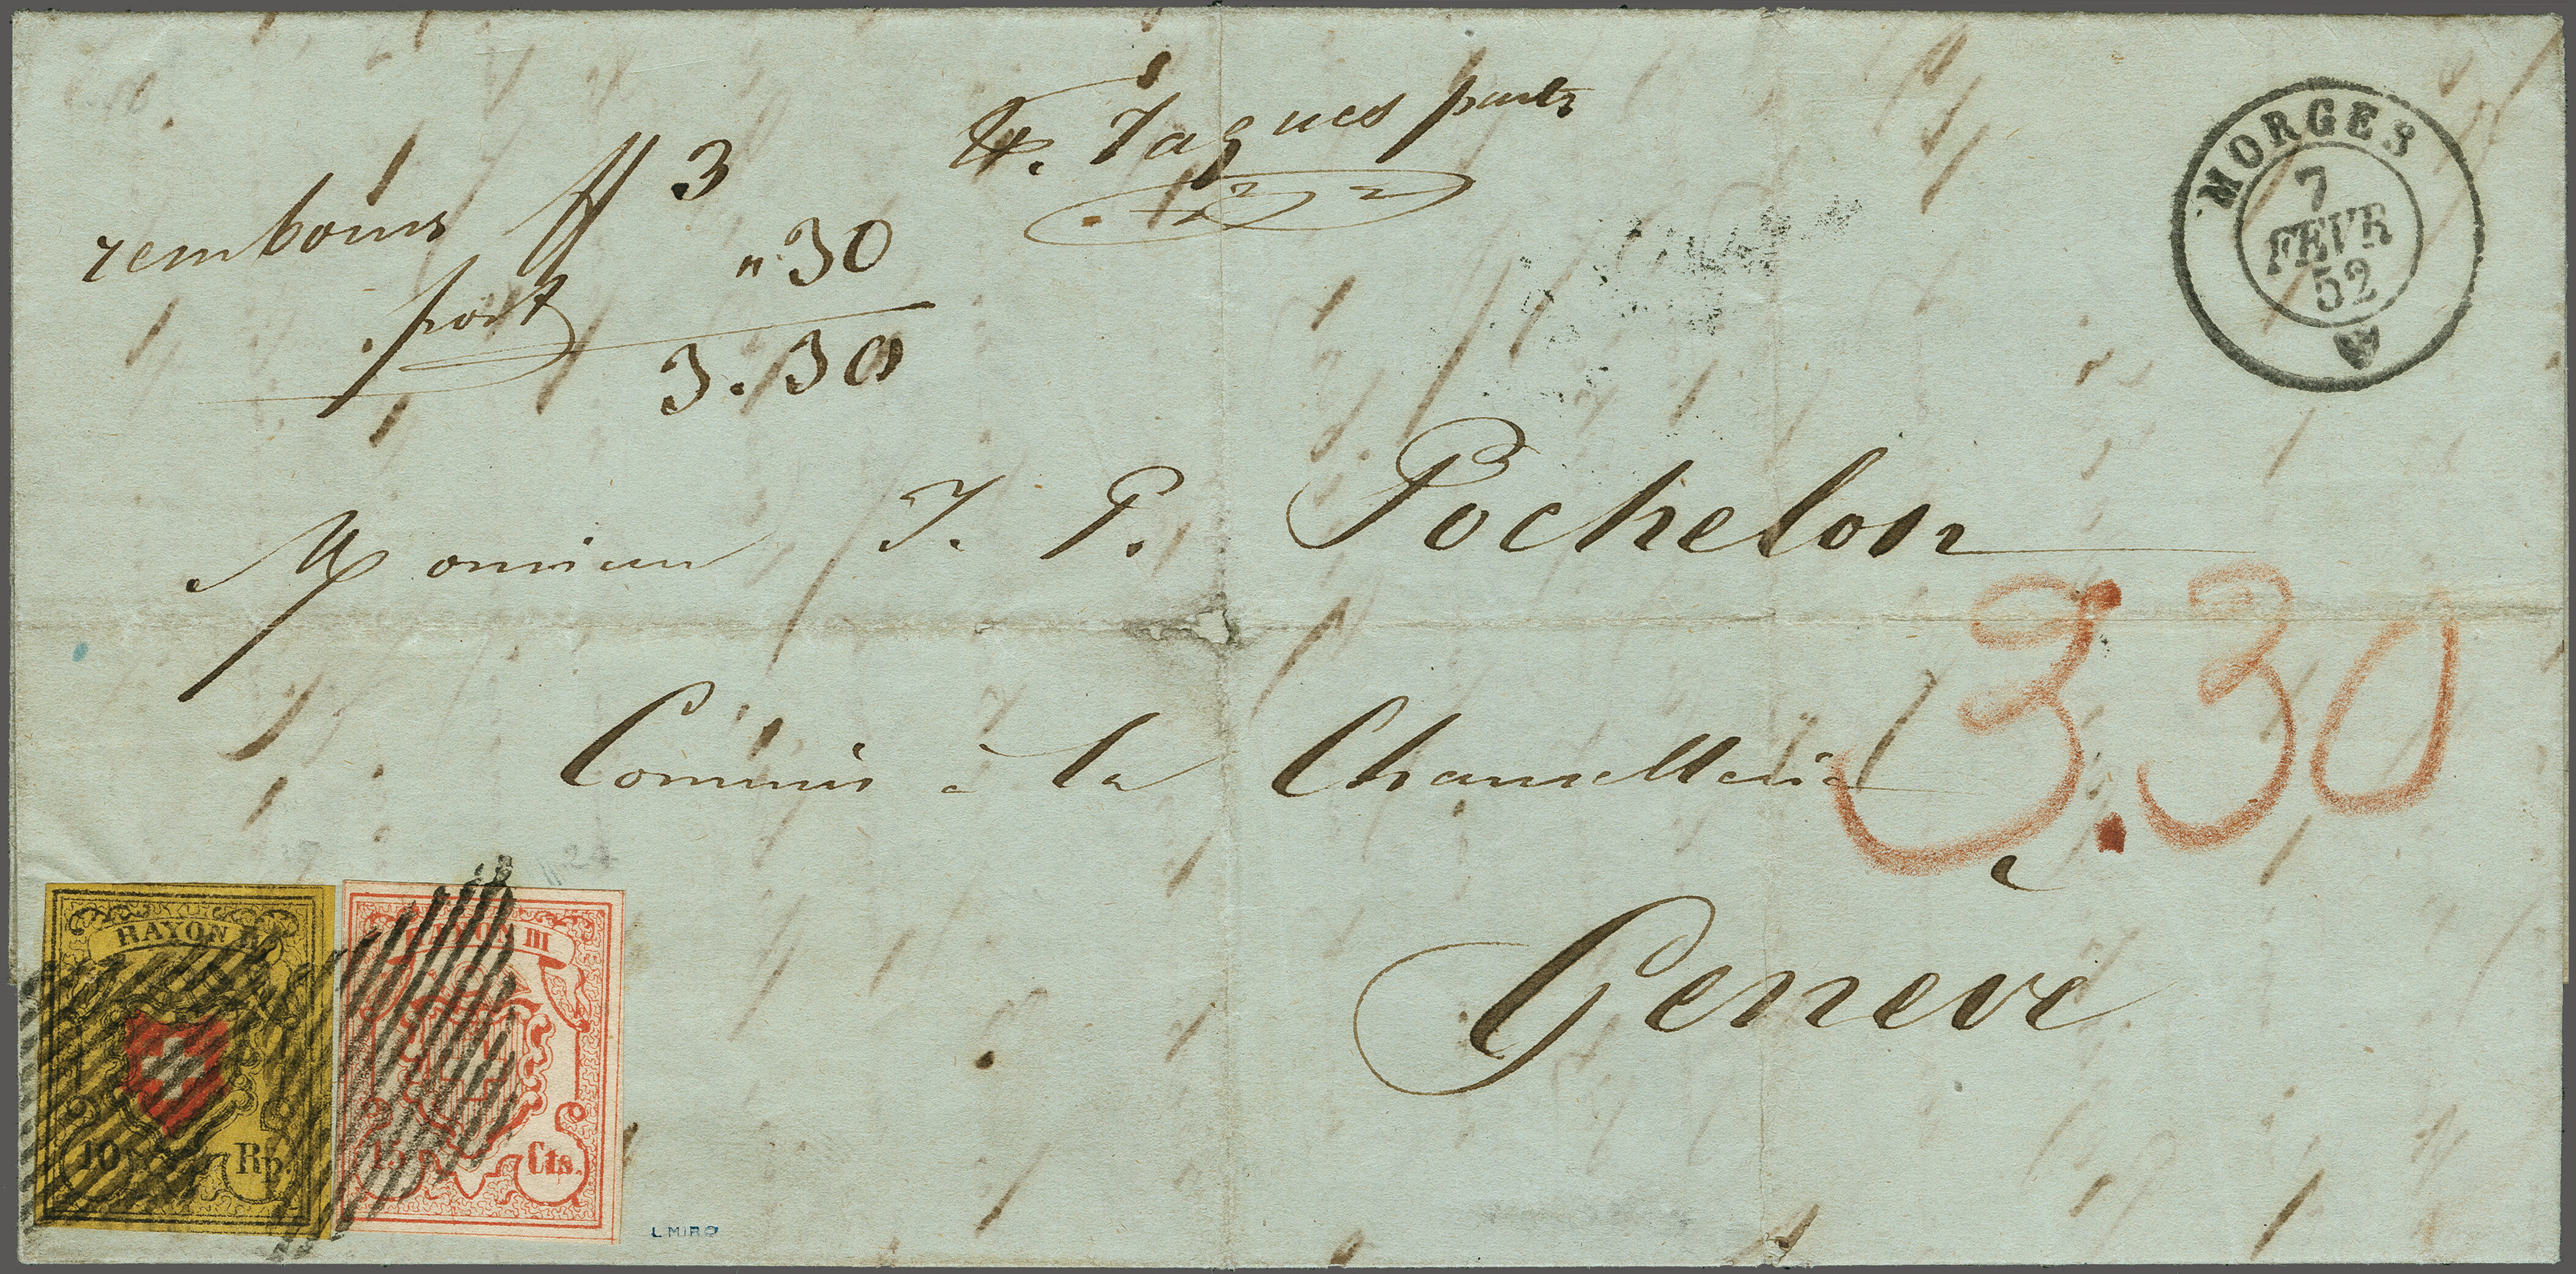 rembours ff 3
port " 30
3.30
Jaques
MORGES
7
FEVR
52
Monsieur J. P. Pochelon
3.30
Commis à la Chancellerie
à
Genève
RAYON II
10 Rp.
RAYON III
15 Cts.
L MIRO